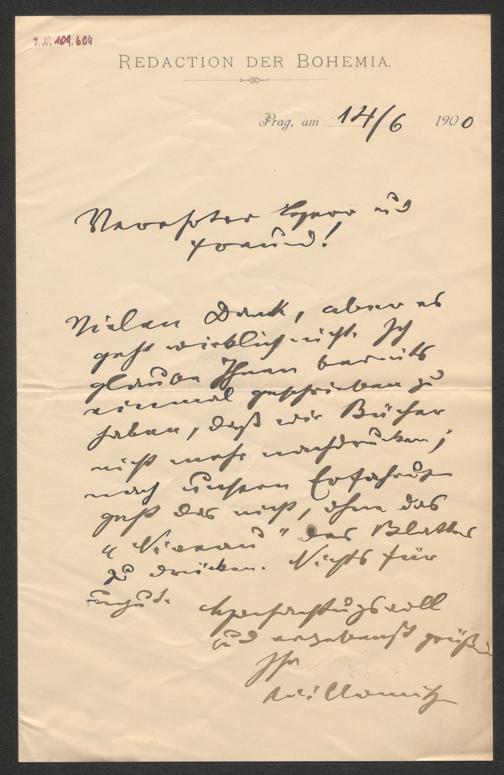 I.N. 109.604
REDACTION DER BOHEMIA.
Prag, am 14/6 1900
Verehrter Herr und
Freund!
Vielen Dank, aber es
geht wirklich nicht. Ich
glaube Ihnen bereits
einmal geschrieben zu
haben, daß wir Bücher
nicht mehr nachdrucken;
nach unseren Erfahrungen
geht das nicht, ohne das
"Niveau" des Blattes
zu drücken. Nichts für
ungut.
Hochachtungsvoll
und ergebenst grüßend
Ihr
Willomitzer